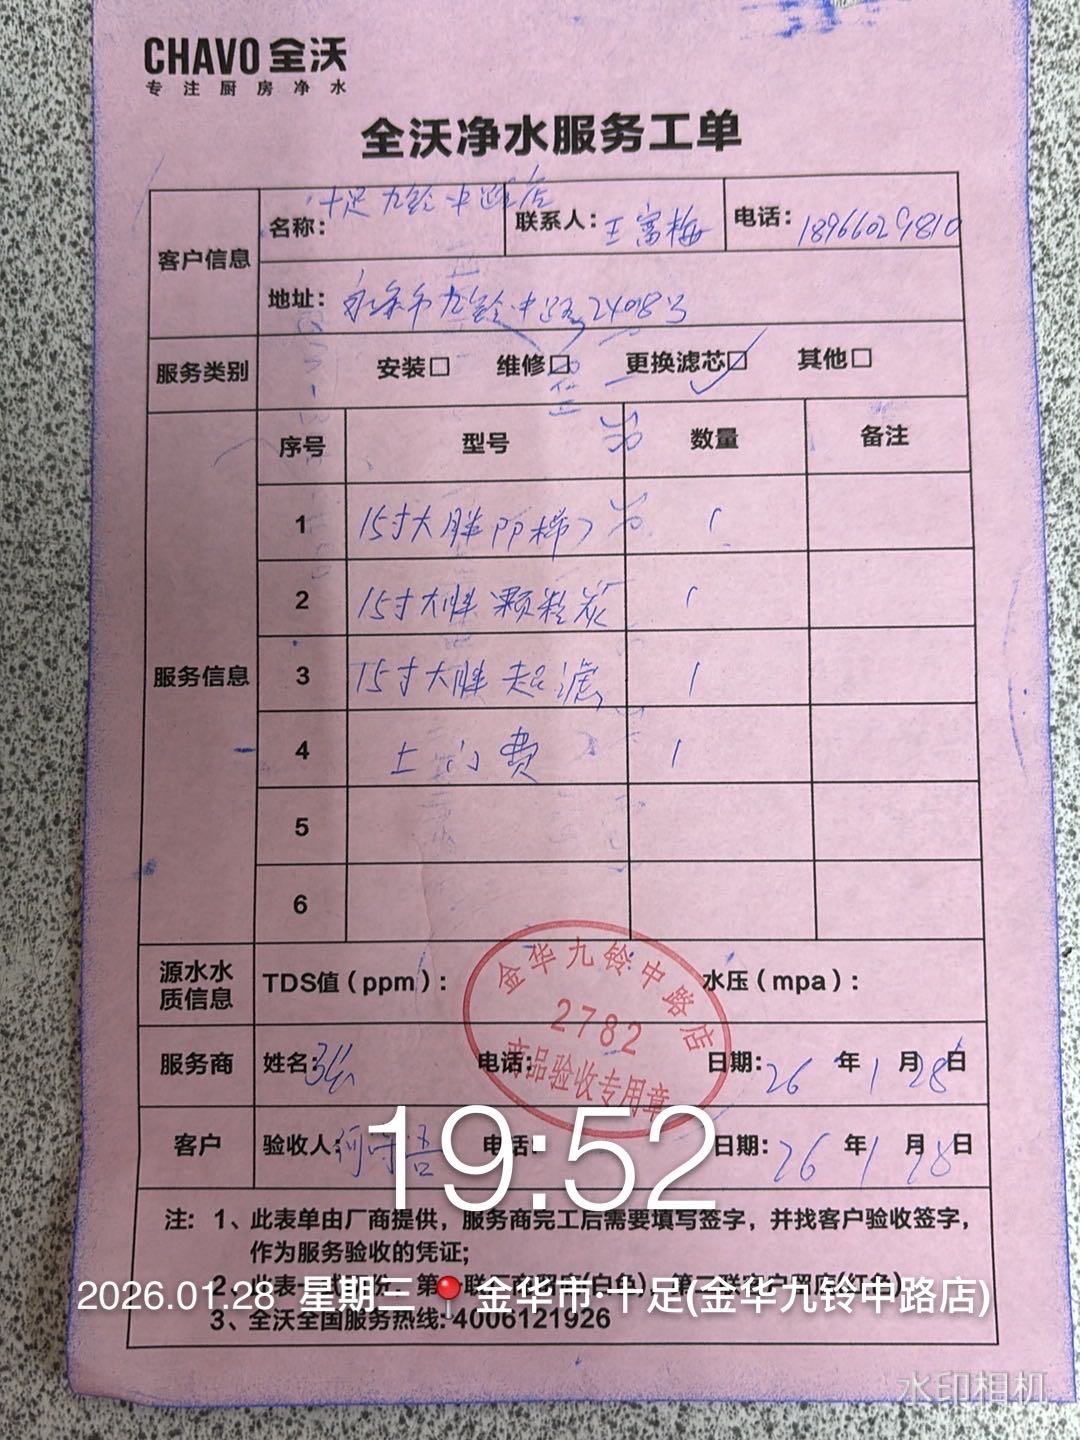 CHAVO 全沃
专注厨房净水
全沃净水服务工单
客户信息
名称: 十足九铃中路店 联系人: 王富梅 电话: 18966029810
地址: 永康市九铃中路2408号
服务类别 安装□ 维修□ 更换滤芯□ 其他□
服务信息
序号 型号 数量 备注
1 15寸大胖PP棉 1
2 15寸大胖颗粒炭 1
3 15寸大胖超滤 1
4 上门费 1
5
6
源水水质信息 TDS值(ppm): 水压(mpa):
金华九铃中路店
2782
商品验收专用章
服务商 姓名: 电话: 日期: 26年1月28日
客户 验收人: 电话: 日期: 26年1月28日
19:52
注: 1、此表单由厂商提供，服务商完工后需要填写签字，并找客户验收签字，
作为服务验收的凭证;
2、此表
2026.01.28 星期三 金华市·十足(金华九铃中路店)
3、全沃全国服务热线: 4006121926
水印相机